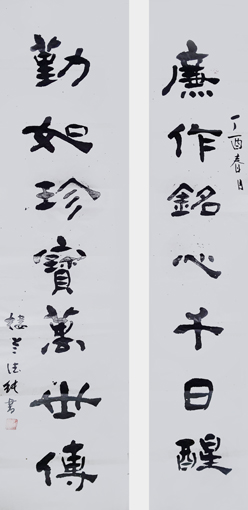 廉作銘心千日醒
丁酉春月
勤如珍寶萬世傳